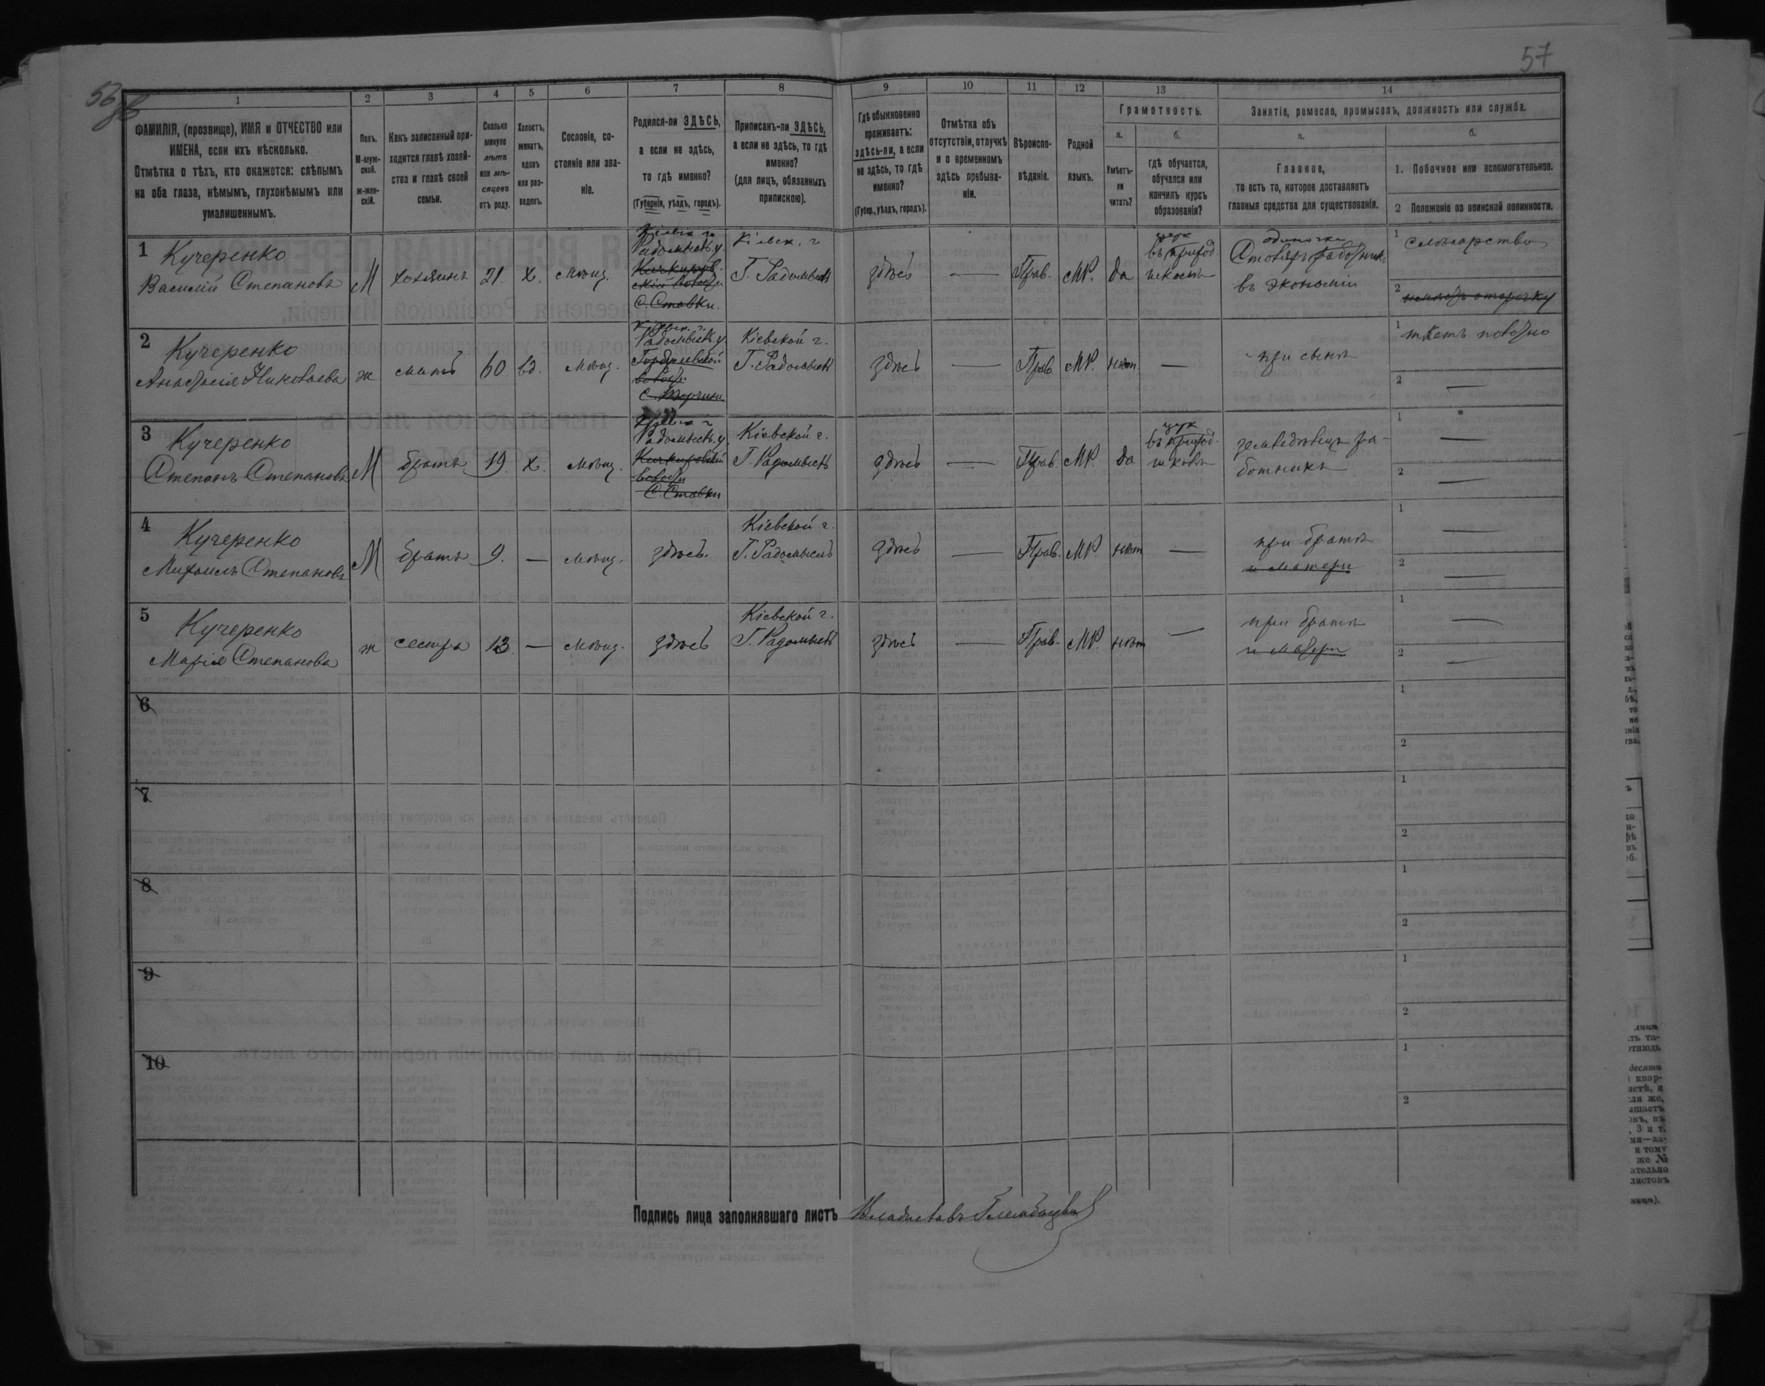 56
57
1 2 3 4 5 6 7 8 9 10 11 12 13 14
ФАМИЛІЯ, (прозвище), ИМЯ и ОТЧЕСТВО или
ИМЕНА, если ихъ нѣсколько.
Отмѣтка о тѣхъ, кто окажется: слѣпымъ
на оба глаза, нѣмымъ, глухонѣмымъ или
умалишеннымъ.
Полъ.
М-муж-
ской.
ж-жен-
скій.
Какъ записанный при-
ходится главѣ хозяй-
ства и главѣ своей
семьи.
Сколько
минуло
лѣтъ
или мѣ-
сяцевъ
отъ роду.
Холостъ,
женатъ,
вдовъ
или раз-
веденъ.
Сословіе, со-
стояніе или зва-
ніе.
Родился-ли ЗДѢСЬ,
а если не здѣсь,
то гдѣ именно?
(Губернія, уѣздъ, городъ).
Приписанъ-ли ЗДѢСЬ,
а если не здѣсь, то гдѣ
именно?
(для лицъ, обязанныхъ
припискою).
Гдѣ обыкновенно
проживаетъ:
здѣсь-ли, а если
не здѣсь, то гдѣ
именно?
(Губер., уѣздъ, городъ).
Отмѣтка объ
отсутствіи, отлучкѣ
и о временномъ
здѣсь пребыва-
ніи.
Вѣроиспо-
вѣданіе.
Родной
языкъ.
Грамотность.
а.
Умѣетъ-
ли
читать?
б.
гдѣ обучается,
обучался или
кончилъ курсъ
образованія?
Занятіе, ремесло, промыселъ, должность или служба.
а.
Главное,
то есть то, которое доставляетъ
главныя средства для существованія.
б.
1. Побочное или вспомогательное.
2 Положеніе по воинской повинности.
1
Кучеренко
Василій Степановъ
М
хозяинъ
21.
х.
мѣщ.
Кіевск. г.
Радомысл. у
С Ставки.
Кіевск. г
Г. Радомысль
здѣсь
—
Прав.
МР.
да
въ приход
школѣ
въ экономіи
1 слюсарство
2
2
Кучеренко
Анастасія Николаева
ж
мать
60
вд.
мѣщ.
Радомысл. у
Кіевской г.
Г. Радомысль
здѣсь
Прав
МР.
нѣт
—
при сынѣ
1
2 —
3
Кучеренко
Степанъ Степановъ
М
братъ
19.
х.
мѣщ.
Радомысл. у
С Ставки
Кіевской г.
Г. Радомысль
здѣсь
—
Прав.
МР.
да
въ приход.
школѣ
земледѣлецъ ра-
ботникъ
1 —
2 —
4
Кучеренко
Михаилъ Степановъ
М
братъ
9.
—
мѣщ.
здѣсь.
Кіевской г.
Г. Радомысль
здѣсь
—
Прав.
МР.
нѣт
—
при братѣ
и матери
1 —
2 —
5
Кучеренко
Марія Степанова
ж
сестра
13
—
мѣщ.
здѣсь
Кіевской г.
Г. Радомысль
здѣсь
—
Прав.
МР.
нѣт
—
при братѣ
и матери
1 —
2 —
6
1
2
7
1
2
8
1
2
9
1
2
10
1
2
Подпись лица заполнявшаго листъ